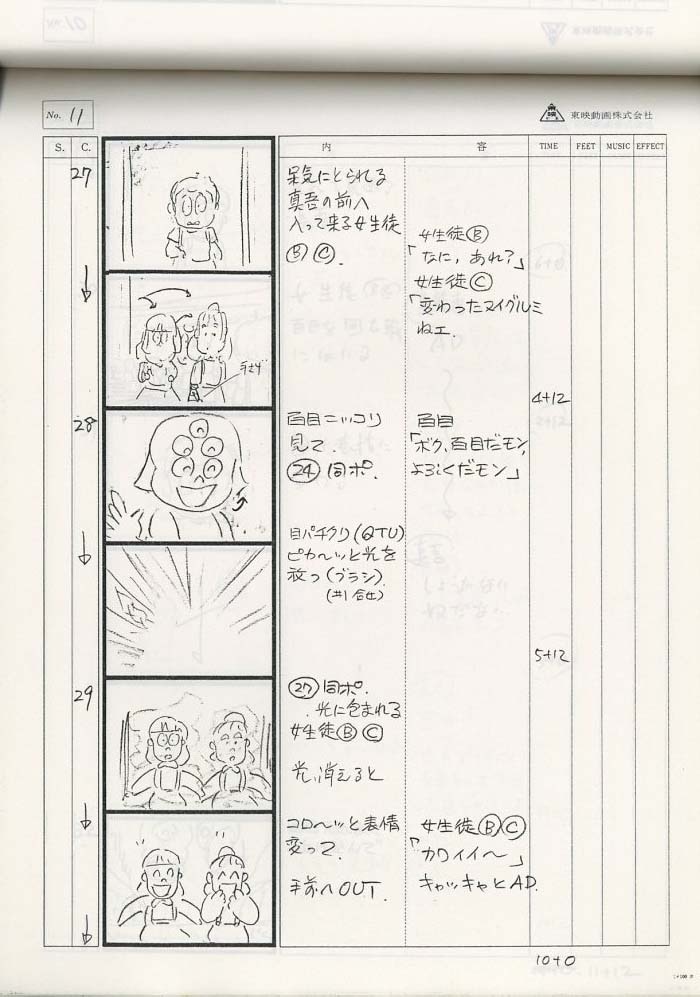 No. 11
東映動画株式会社
S. C. 内 容 TIME FEET MUSIC EFFECT
27
呆気にとられる
真吾の前へ
入って来る女生徒
Ⓑ Ⓒ.
女生徒Ⓑ
「なに, あれ?」
女生徒Ⓒ
「変わったヌイグルミ
ねェ.
手さげ
4+12
28
百目ニッコリ
見て.
㉔ 同ポ.
百目
「ボク、百目だモン,
よろしくだモン」
目パチクリ(QTU)
ピカ〜ッと光を
放つ(ブラシ)
5+12
29
㉗ 同ポ.
光に包まれる
女生徒Ⓑ Ⓒ
光、消えると
コロ〜ッと表情
変って.
手前へOUT.
女生徒ⒷⒸ
「カワイイ〜」
キャッキャとAD.
10+0